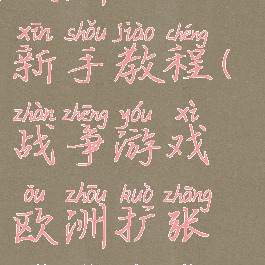 xīn shǒu jiào chéng
新手教程(
zhàn zhēng yóu xì
战争游戏
ōu zhōu kuò zhāng
欧洲扩张